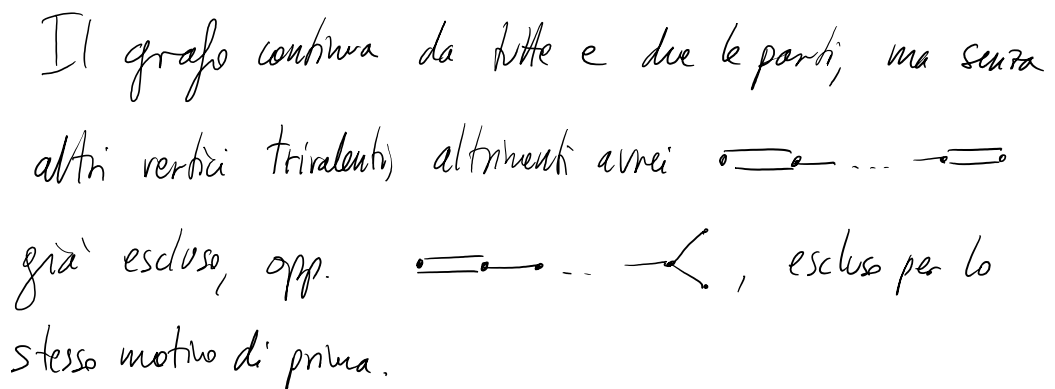 Il grafo continua da tutte e due le parti, ma senza
altri vertici trivalenti, altrimenti avrei ...
già escluso, opp. .. , escluso per lo
stesso motivo di prima.